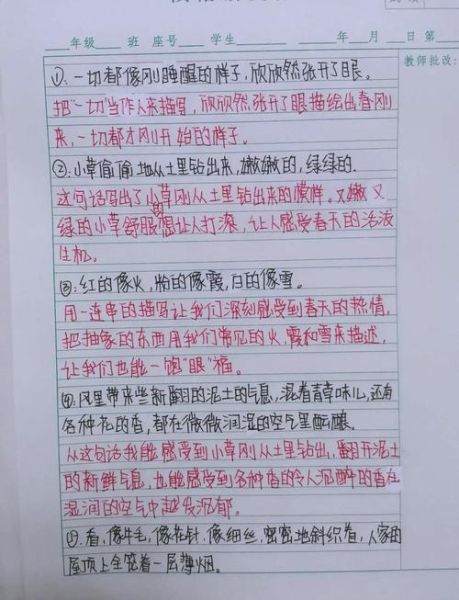 年级 班 座号 学生 年 月 日 第
教师批改:
①、一切都像刚睡醒的样子,欣欣然张开了眼。
把"一切"当作人来描写,欣欣然张开了眼描绘出春刚
来,一切都才刚开始的样子。
②、小草偷偷地从土里钻出来,嫩嫩的,绿绿的.
这句话写出了小草刚从土里钻出来的模样。又嫩又
绿的小草舒服的想让人打滚,让人感受春天的活泼
生机。
③、红的像火,粉的像霞,白的像雪。
用一连串的描写让我们深刻感受到春天的热情,
把抽象的东西用我们常见的火,霞和雪来描述,
让我们也能一饱"眼"福。
④、风里带来些新翻的泥土的气息,混着青草味儿,还有
各种花的香,都在微微润湿的空气里酝酿。
从这句话我能感受到小草刚从土里钻出,翻开泥土
的新鲜气息,也能感受到各种香的令人沉醉的香在
湿润的空气中越发浓郁。
⑤、看,像牛毛,像花针,像细丝,密密地斜织着,人家的
屋顶上全笼着一层薄烟。